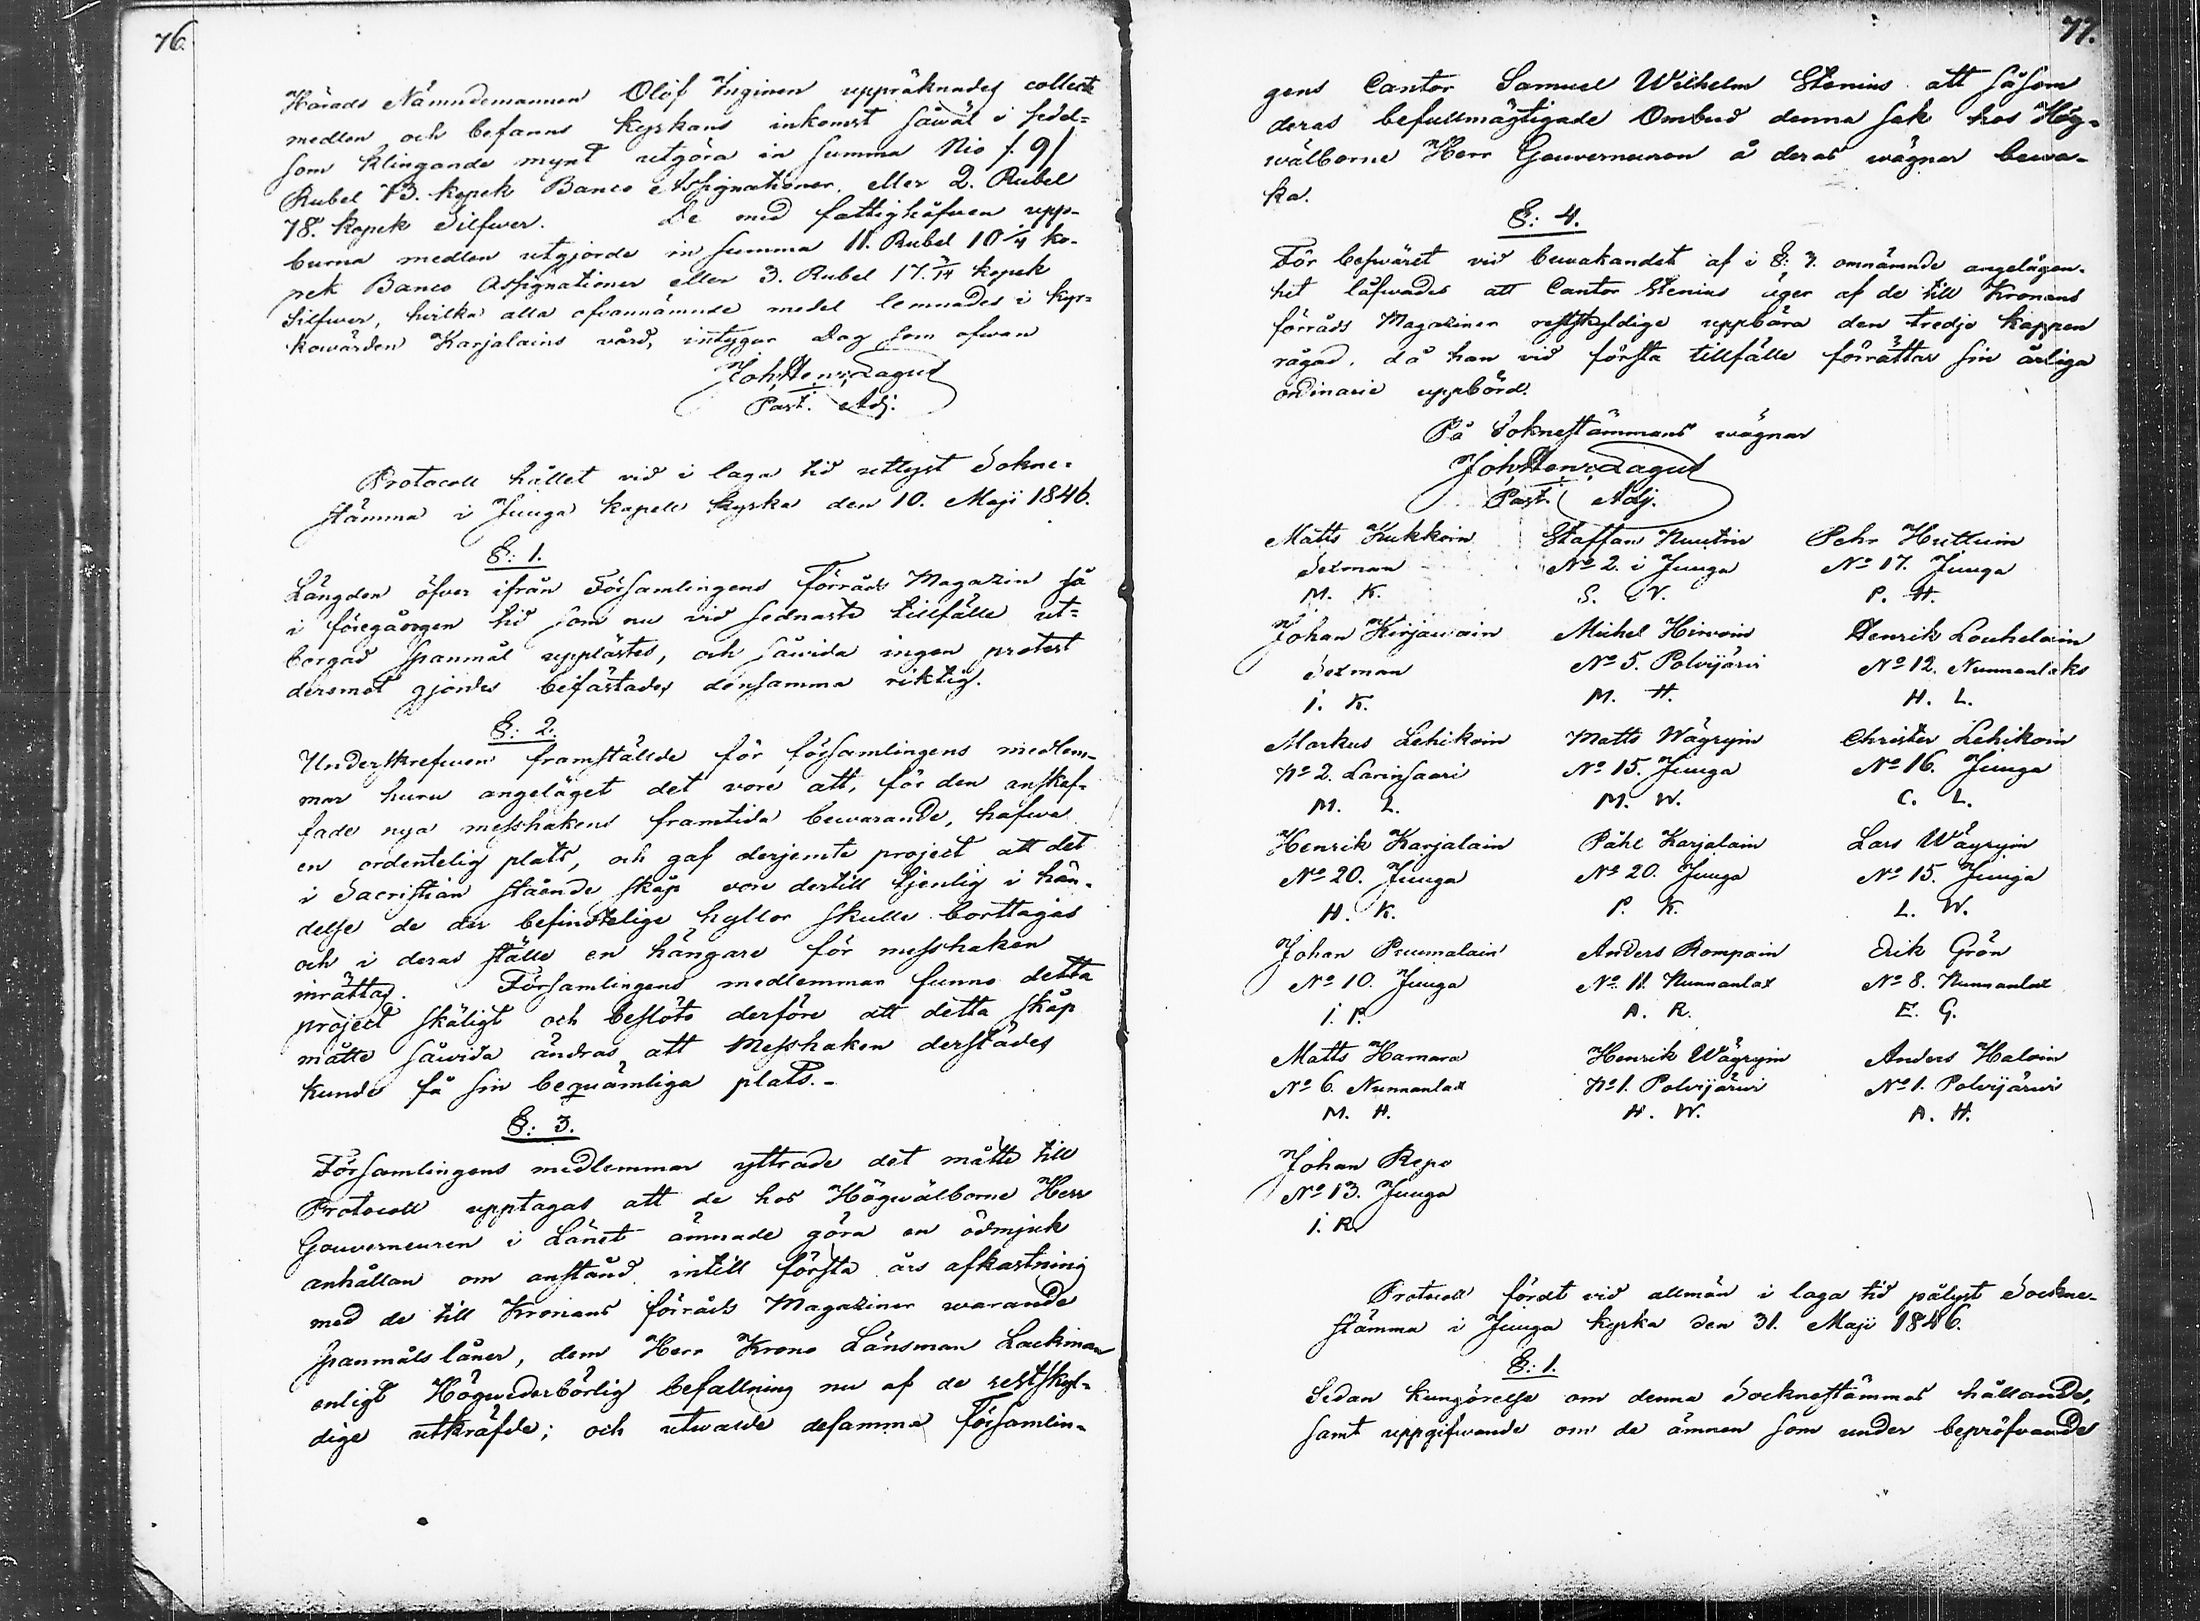 76.
Härads Nämndemannen Olof Inginen uppräknades collect
medlen och befanns kyrkans inkomst såwäl i sedel=
som klingande mynt utgöra in summa Nio /:9/
Rubel 73. kopek Banco Assignationer, eller 2. Rubel
78. kopek Silfwer. De med fattighåfwen upp-
burna medlen utgjorde in summa 11. Rubel 10 1/4 ko-
pek Banco Assignationer eller 3. Rubel 17. 3/14 kopek
Silfwer, hvilka alla ofvannämnde medel lemnades i kyr=
kowärden Karjalains vård, intygar Dag som ofwan
Joh. Henr. Lagus
Past. Adj.
Protocoll hållet vid i laga tid utlyst Sokne-
stämma i Juuga kapell kyrka den 10. Maji 1846.
§: 1.
Längden öfver ifrån Församlingens Förråds Magazin så
i föregången tid som nu vid sednaste tillfälle ut=
borgad spanmål upplästes, och såwida ingen protest
deremot gjordes befästades densamma riktig.
§: 2.
Underskrefwen framställde för församlingens medlem-
mar huru angeläget det vore att, för den anskaf-
fade nya messhakens framtida bewarande, hafwa
en ordentelig plats, och gaf derjemte project att det
i Sacristian stående skåp vore dertill tjenlig i hän-
delse de der befindtelige hyllor skulle borttagas
och i deras ställe en hängare för messhaken
inrättas. Församlingens medlemmar funno detta
project skäligt och beslöto derföre att detta skåp
måtte såwida ändras att Messhaken derstädes
kunde få sin bequämliga plats.-
§: 3.
Församlingens medlemmar yttrade det måtte till
Protocoll upptagas att de hos Högwälborne Herr
Gouverneuren i Länet ämnade göra en ödmjuk
anhållan om anstånd intill första års afkastning
med de till Kronans förråds Magaziner warande
spanmåls låner, dem Herr Krono Länsman Lackman
enligt Högwederbörlig befallning nu af de restskyl-
dige utkräfde; och utwalde desamma Församlin-
77.
gens Cantor Samuel Wilhelm Stenius att såsom
deras befullmägtigade Ombud denna sak hos Hög-
wälborne Herr Gouverneuren å deras wägnar bewa-
ka.
§: 4.
För beswäret vid bewakandet af i §: 3. omnämnde angelägen-
het låfwades att Cantor Stenius äger af de till Kronans
förråds Magaziner restskyldige uppbära den tredje kappen
rågad, då han vid första tillfälle förrättar sin årliga
ordinarie uppbörd.
På Soknestämmans wägnar
Joh. Henr. Lagus
Past. Adj.
Matts Kukkoin Staffan Nuutin Pehr Huttuin
Sexman No 2. i Juuga No 17. Juuga
M. K. S. N. P. H.
Johan Kirjawain Michel Hirwoin Henrik Louhelain
Sexman No 5. Polvijärvi No 12. Nunnanlaks
I. K. M. H. H. L.
Markus Lehikoin Matts Wäyryin Christer Lehikoin
No 2. Larinsaari No 15. Juuga No 16. Juuga
M. L. M. W. C. L.
Henrik Karjalain Påhl Karjalain Lars Wäyryin
No 20. Juuga No 20. Juuga No 15. Juuga
H. K. P. K. L. W.
Johan Puumalain Anders Rompain Erik Grön
No 10. Juuga No 11. Nunnanlax No 8. Nunnanlax
I. P. A. R. E. G.
Matts Hamara Henrik Wäyryin Anders Haloin
No 6. Nunnanlax No 1. Polvijärwi No 1. Polvijärwi
M. H. H. W. A. H.
Johan Repo
No 13. Juuga
I. R.
Protocoll fördt vid allmän i laga tid pålyst Sockne-
stämma i Juuga kyrka den 31. Maji 1846.
§: 1.
Sedan kungörelse om denna Socknestämmas hållande,
samt uppgifwande om de ämnen som under bepröfwande